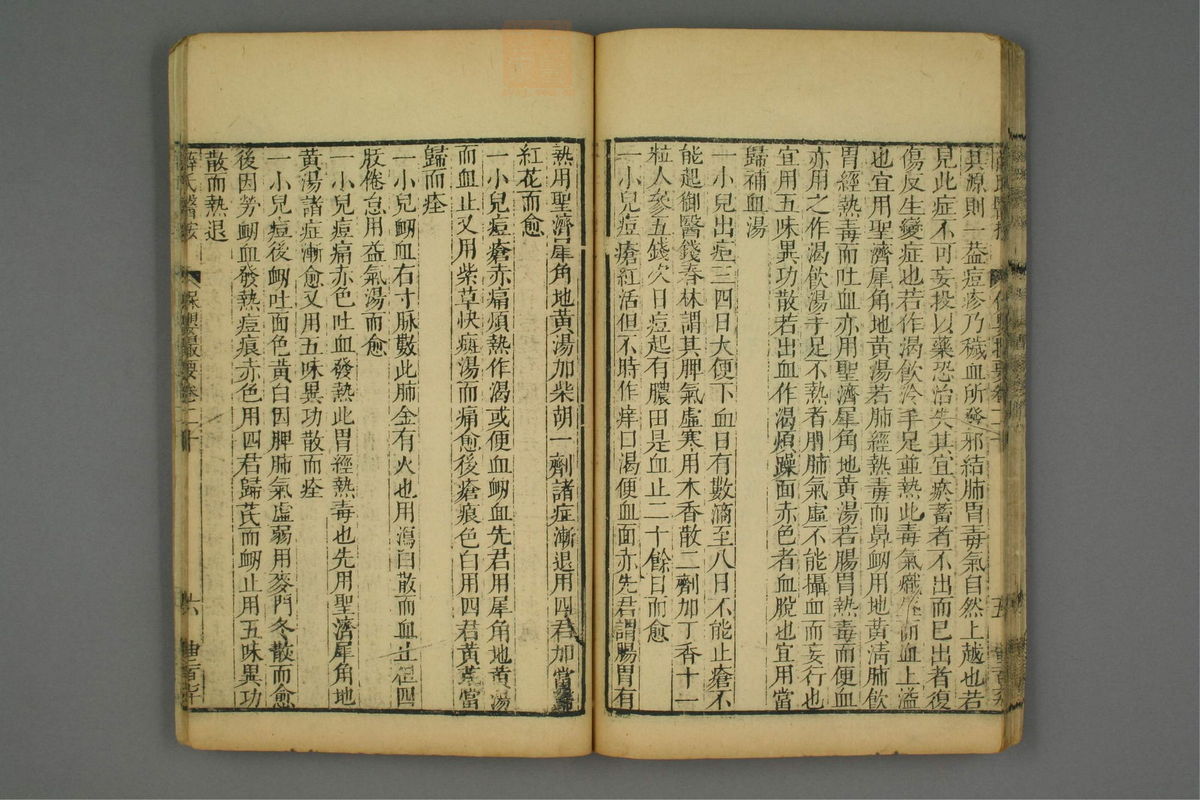 其源則一蓋痘疹乃穢血所發邪結肺胃毒氣自然上越也若
見此症不可妄投以藥恐治失其宜瘀蓄者不出而已出者復
傷反生變症也若作渴飲冷手足並熱此毒氣熾盛而血上溢
也宜用聖濟犀角地黃湯若肺經熱毒而鼻衂用地黃清肺飲
胃經熱毒而吐血亦用聖濟犀角地黃湯若腸胃熱毒而便血
亦用之作渴飲湯手足不熱者脾肺氣虛不能攝血而妄行也
宜用五味異功散若出血作渴煩躁面赤色者血脫也宜用當
歸補血湯
一小兒出痘三四日大便下血日有數滴至八日不能止瘡不
能起御醫錢春林謂其脾氣虛寒用木香散二劑加丁香十一
粒人參五錢次日痘起有膿田是血止二十餘日而愈
一小兒痘瘡紅活但不時作痒口渴便血面赤先君謂腸胃有
熱用聖濟犀角地黃湯加柴胡一劑諸症漸退用四君加當歸
紅花而愈
一小兒痘瘡赤痛煩熱作渴或便血衂血先君用犀角地黃湯
而血止又用紫草快癍湯而痛愈後瘡痕色白用四君黃芪當
歸而痊
一小兒衂血右寸脉數此肺金有火也用瀉白散而血止但四
肢倦怠用益氣湯而愈
一小兒痘痛赤色吐血發熱此胃經熱毒也先用聖濟犀角地
黃湯諸症漸愈又用五味異功散而痊
一小兒痘後衂吐面色黃白因脾肺氣虛弱用麥門冬散而愈
後因勞衂血發熱痘痕赤色用四君歸芪而衂止用五味異功
散而熱退
薛氏醫按 保嬰撮要卷二十 六